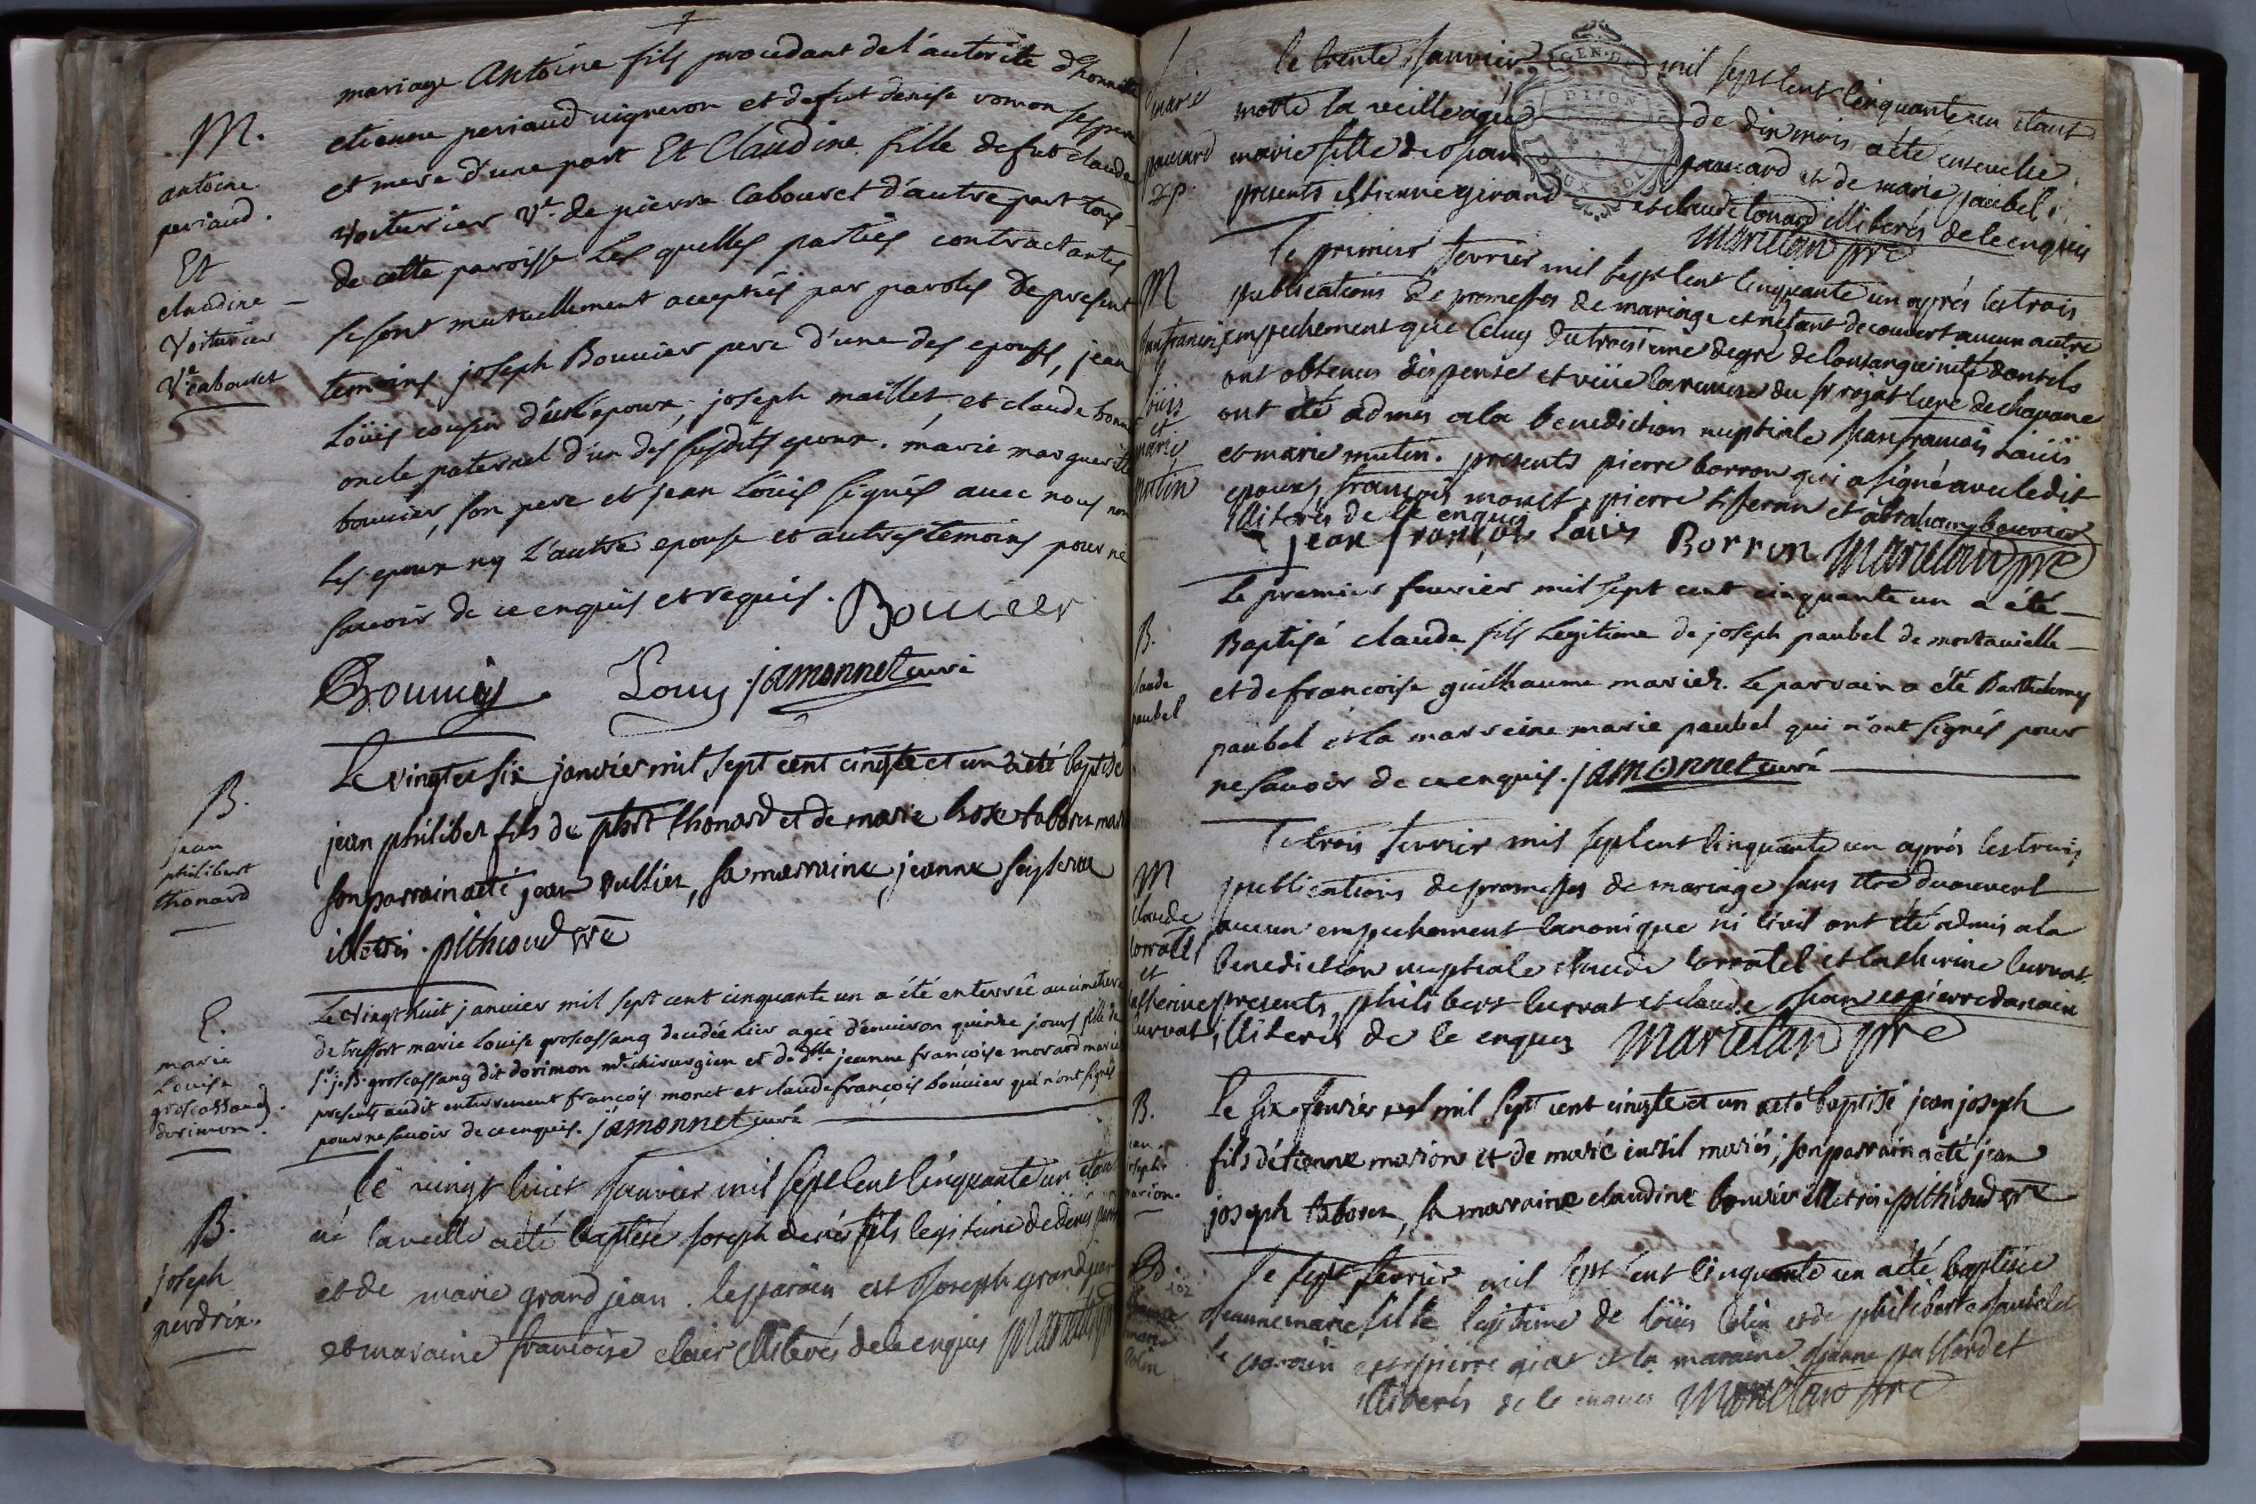 mariage Antoine fils procedant de l'autorité d'honnete
M.
etienne periaud vigneron et defut denise vomon ses pere
antoine
periaud.
et mere d'une part Et Claudine fille defut claude
Et
voiturier Ve. de pierre Cabouret d'autre part tous
claudine
de cette paroisse Lesquelles parties contractantes
Voiturier
se sont mutuellement acceptés par paroles de present
Ve cabouret
temoins joseph Bouvier pere d'une des epouses, jean
Loüis cousin epoux, joseph maillet, et claude
oncle paternel d'un des susdits epoux. marie marguerite
bouvier, son pere et jean Loüis signés avec nous non
les epoux ny l'autre epouse et autres temoins pour ne
savoir de ce enquis et requis. Bouvier
Bouvier Louis jamonnet curé
B.
jean
philibert
thonard
Le vingt et six janvier mil sept cent cinqte et un a été baptisé
jean philiber fils de phbt thonard et de marie rose taborez
son parrain a eté jean vullier, sa marraine jeanne
illetrés. pithioud vre
E.
marie
Louise
groscassand
dorimon.
Le vingt huit janvier mil sept cent cinquante un a été enterrée au cimetiere
de treffort marie Louise groscassang decedée hier agée d'environ quinze jours fille de
sr j. B. groscassang dit dorimon mre chirurgien et de dlle jeanne françoise morard mariés
presents audit enterrement françois monet et claude françois bouvier qui n'ont signés
pour ne savoir de ce enquis. jamonnet curé
B.
joseph
perdrix.
le vingt huict Janvier mil sept cent cinquante un etant
né la veille a eté baptisé Joseph fils legitime de denis
et de marie grand jean. le parain est Joseph grandjean
et maraine françoise clair illiterés de ce enquis Marielan pre
marie
pancard
le trente Janvier mil sept cent cinquante un etant
morte la veille agée de dix mois a été ensevelie
marie fille de Jean panard et de marie paubel
presents Estienne girand et claude tonard illiterés de ce enquis
Marielan pre
M
jean francois
Loüis
et
marie
mutin
le premier fevrier mil sept cent cinquante un après les trois
publications de promesses de mariage et n'etant decouvert aucun autre
empechement que celuy du troisieme degré de consanguinité dont ils
ont obtenus dispense et viüe la remise du Sr rojat curé de chavane
ont été admis a la benediction nuptiale Jean francois Loüis
et marie mutin. presents pierre borron qui a signé avec ledit
epoux, francois monet, pierre et abraham bouvier
illiterés de ce enquis
jean françois Louis Borron Marielan pre
B.
claude
paubel
Le premier fevrier mil sept cent cinquante un a été
Baptisé claude fils Legitime de joseph paubel de montanielle
et de francoise guillaume mariés. Le parrain a été Barthelemy
paubel et la marreine marie paubel qui n'ont signés pour
ne savoir de ce enquis. jamonnet curé
M
claude
corratel
et
catherine
curvat
le trois fevrier mil sept cent cinquante un après les trois
publications de promesses de mariage sans etre decouvert
aucun empechement canonique ni civil ont été admis a la
benediction nuptiale claude corratel et catherine curvat.
presents, philibert curvat et claude Jean et pierre danain
illiterés de ce enquis Marielan pre
B.
jean
joseph
marion.
Le six fevrier mil sept cent cinqte et un a eté baptisé jean joseph
fils d'étienne marion et de marie mariés; son parrain a eté jean
joseph taborez, sa marraine claudine bouvier illetrés pithioud vre
B
102
Jeanne
marie
colin
le sept fevrier mil sept cent cinquante un a été baptisée
Jeanne marie fille legitime de loüis colin et de philiberte
le parain est pierre giat et la maraine Jeanne paillardet
illiterés de ce enquis Marielan pre
GEN. DE
DIJON
DEUX SOLS